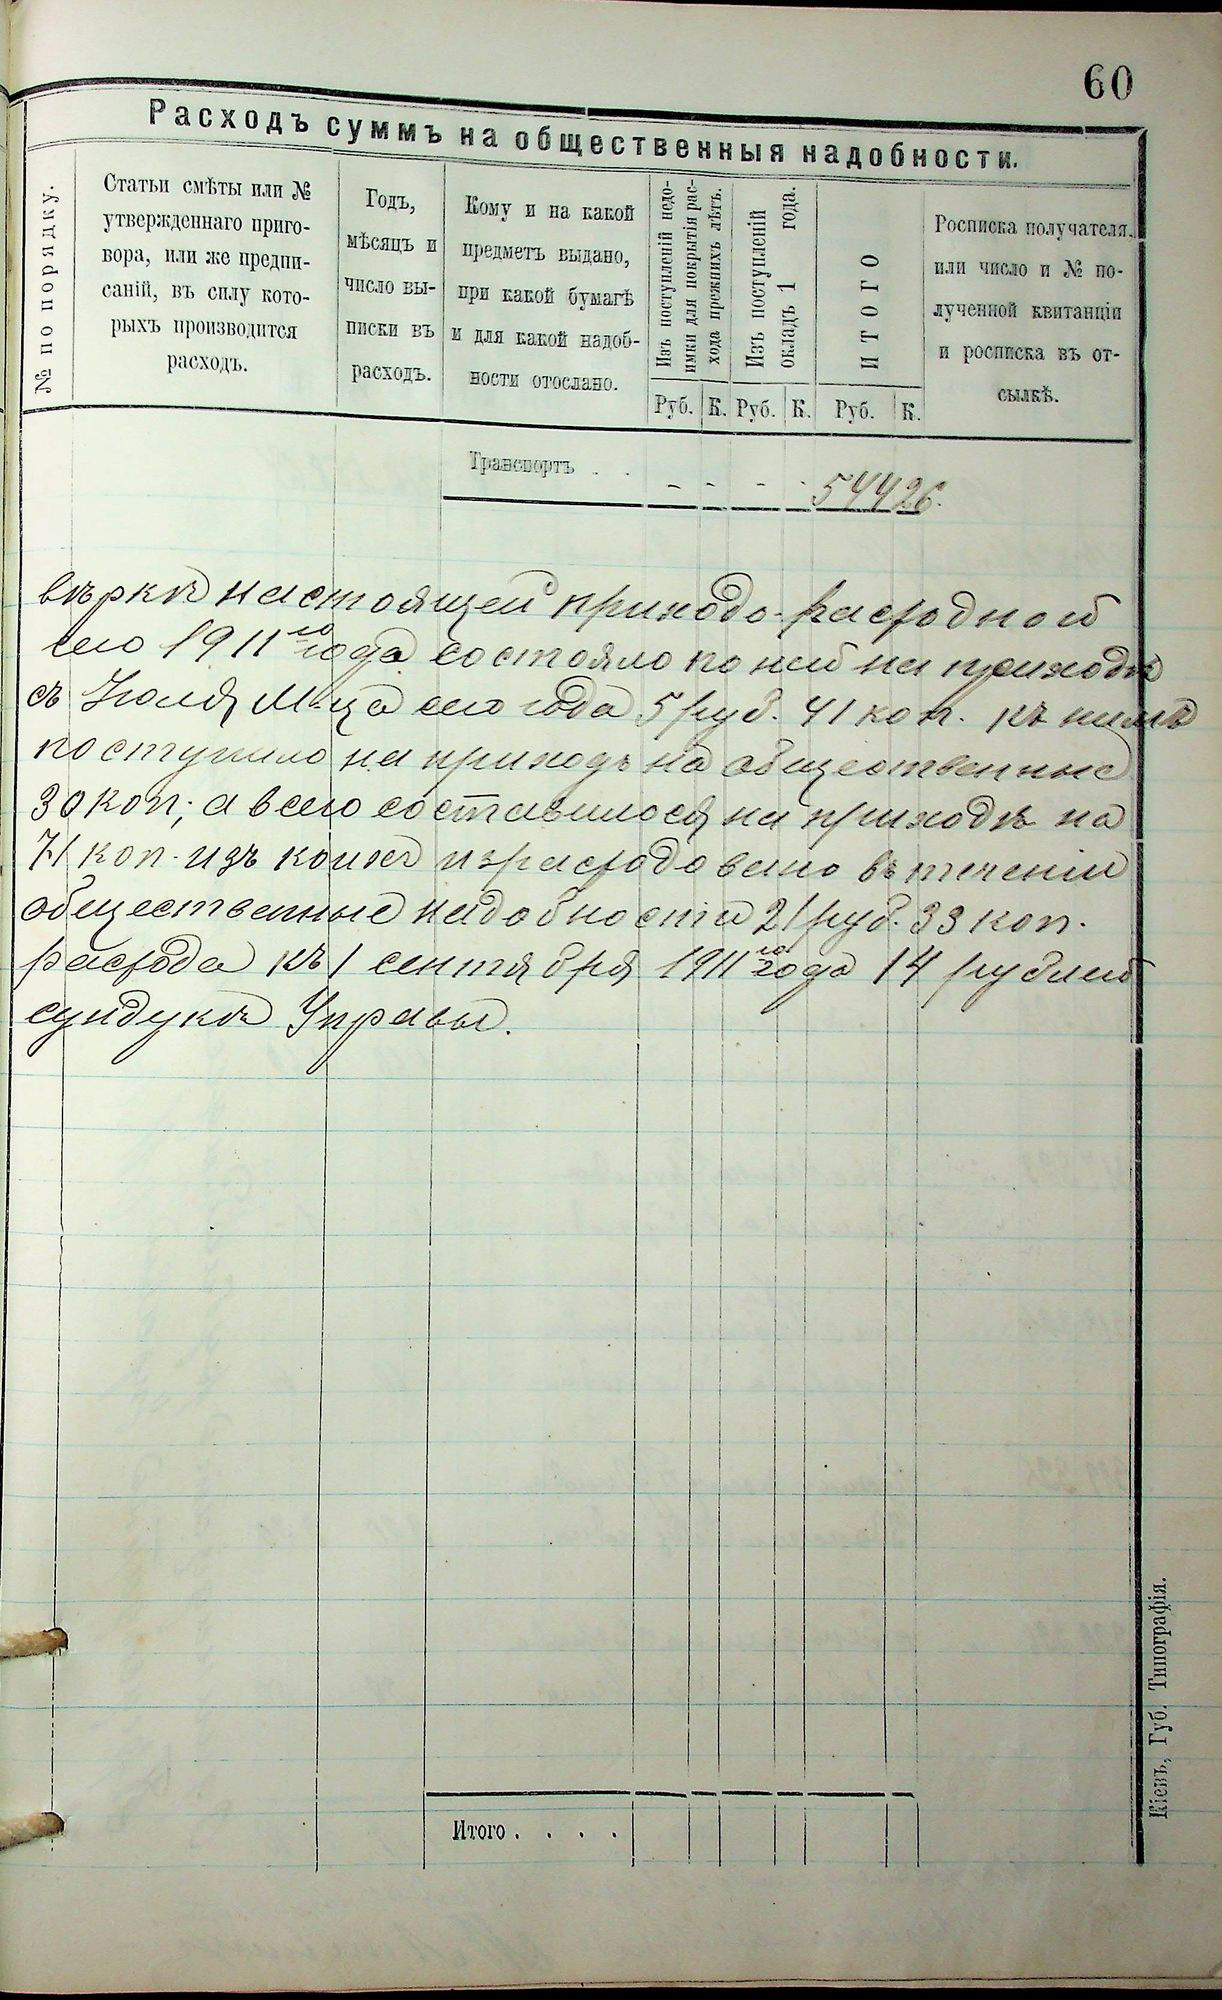 60
Расходъ суммъ на общественныя надобности.
№ по порядку.
Статьи смѣты или №
утвержденнаго приго-
вора, или же предпи-
саній, въ силу кото-
рыхъ производится
расходъ.
Годъ,
мѣсяцъ и
число вы-
писки въ
расходъ.
Кому и на какой
предметъ выдано,
при какой бумагѣ
и для какой надоб-
ности отослано.
Изъ поступленій недо-
имки для покрытія рас-
хода прежнихъ лѣтъ.
Изъ поступленій
окладъ 1 года.
ИТОГО
Росписка получателя.
или число и № по-
лученной квитанціи
и росписка въ от-
сылкѣ.
Руб. К. Руб. К. Руб. К.
Транспортъ . . - - - - 544 26.
вѣркѣ настоящей приходо-расходной
сего 1911го года состояло по ней на приходѣ
съ Іюля М-ца сего года 5 руб. 41 коп. къ нимъ
поступило на приходъ на общественные
30 коп; а всего составилося на приходѣ на
71 коп. изъ коихъ израсходовано въ теченіи
общественные надобности 21 руб. 33 коп.
расхода къ 1 сентября 1911го года 14 рублей
сундукѣ Управы.
Итого . . . .
Кіевъ, Губ. Типографія.